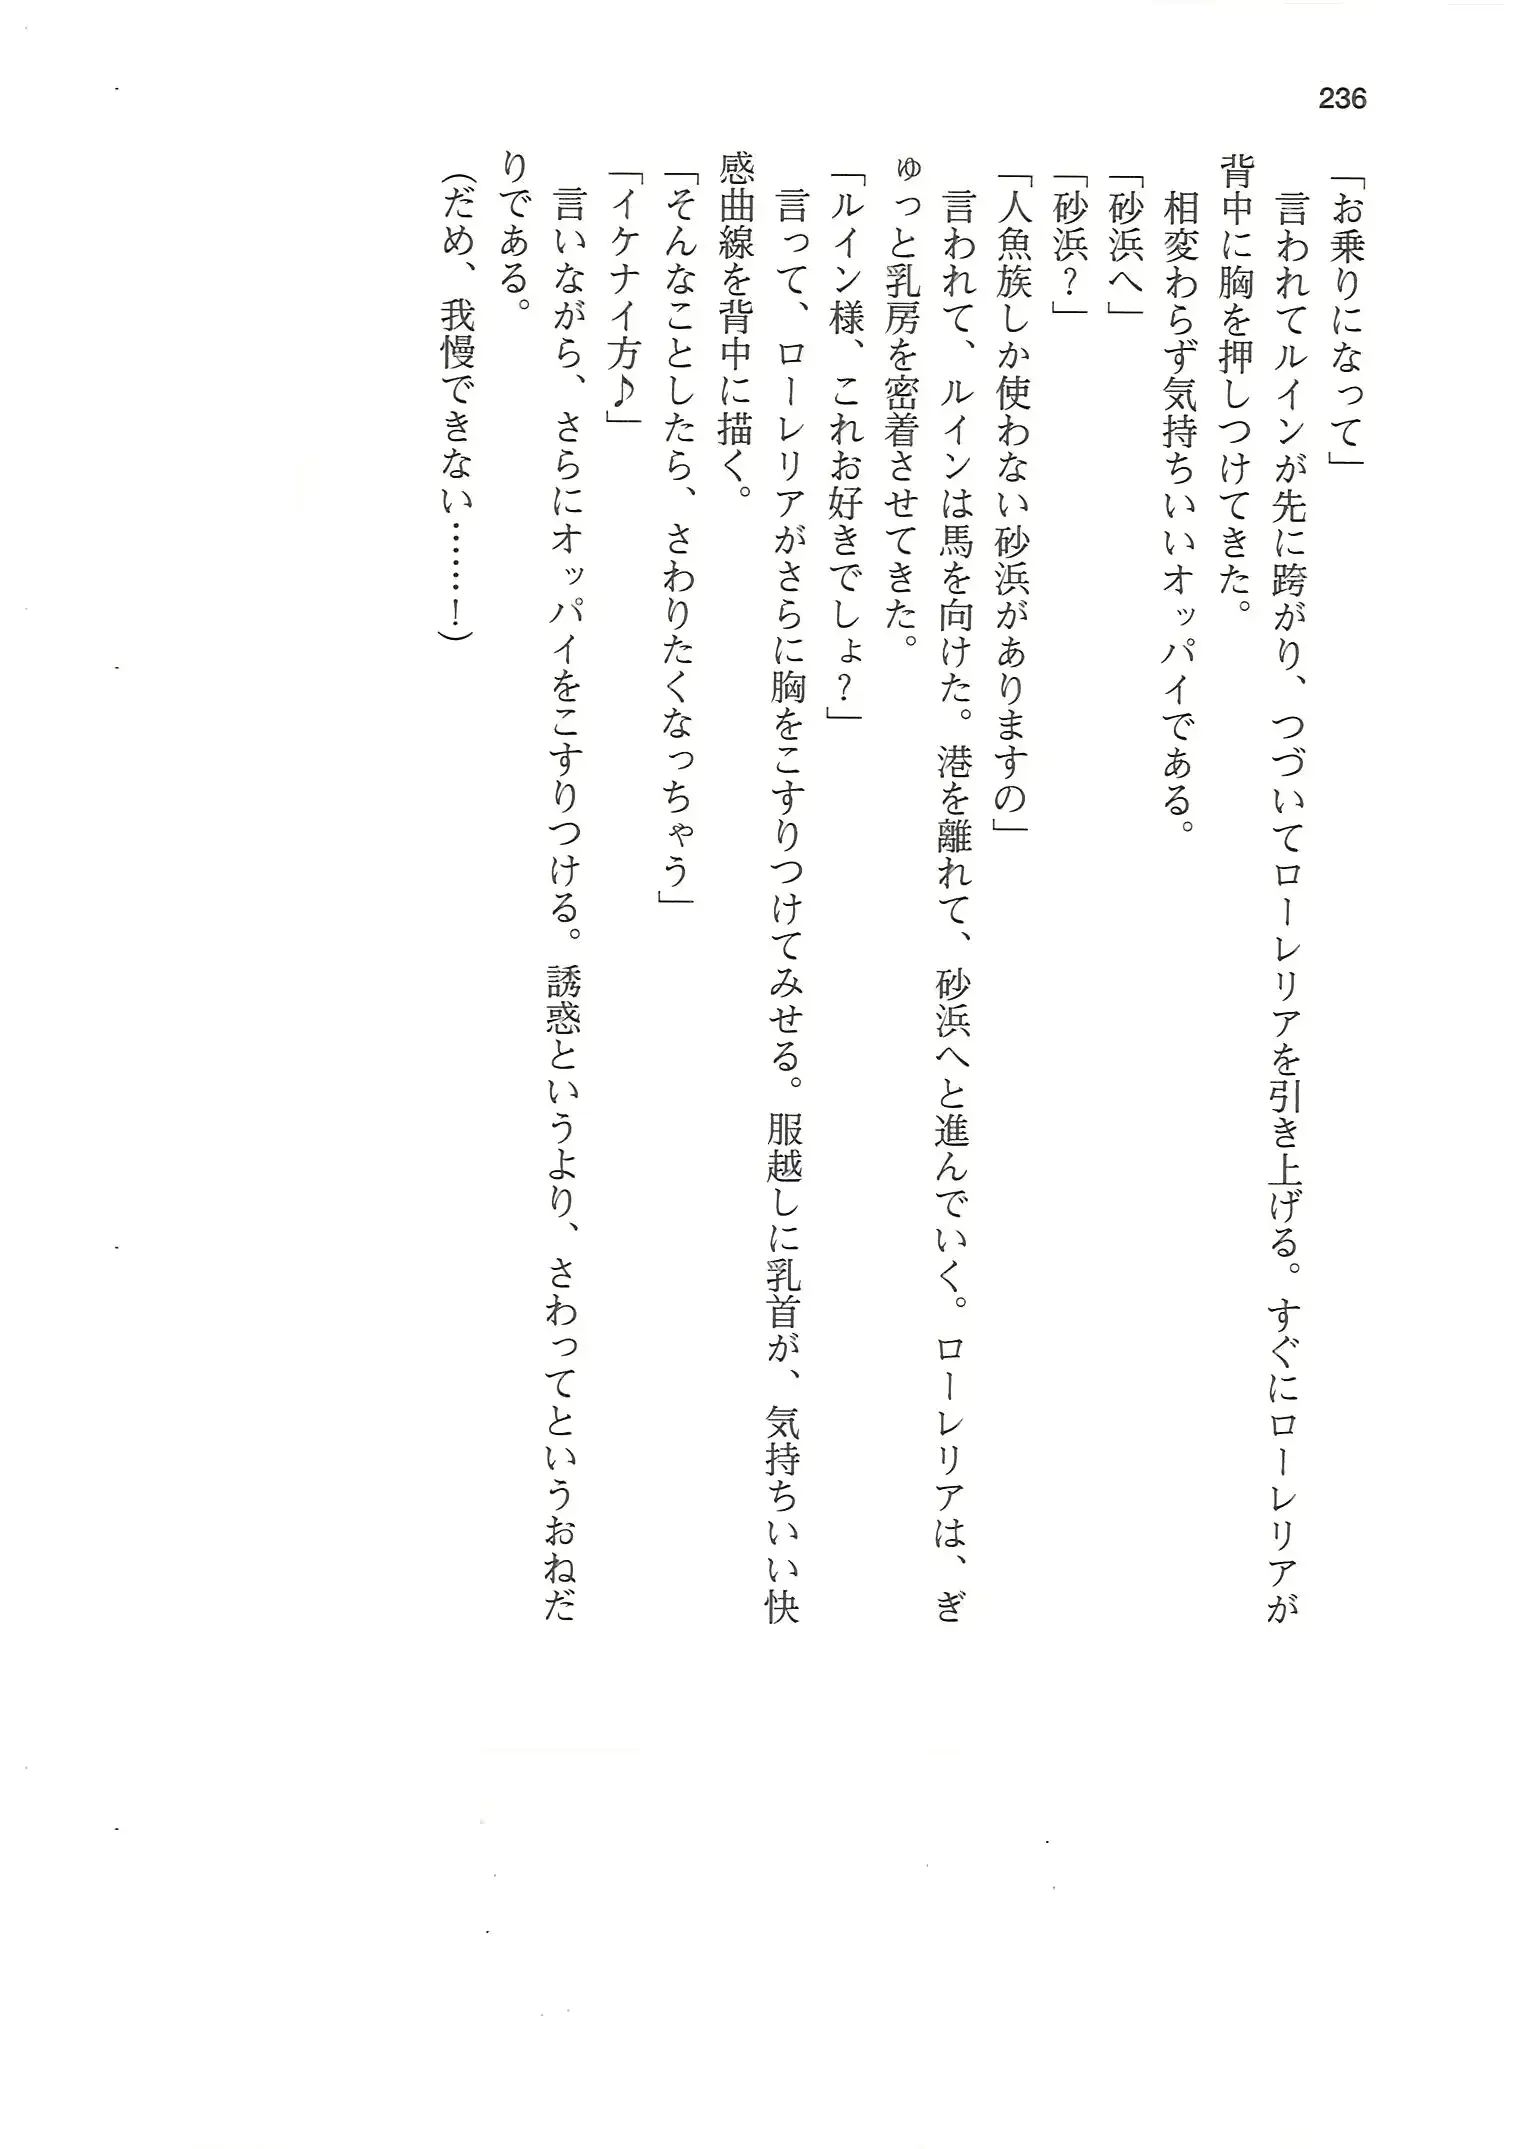 236
「お乗りになって」
　言われてルインが先に跨がり、つづいてローレリアを引き上げる。すぐにローレリアが
背中に胸を押しつけてきた。
　相変わらず気持ちいいオッパイである。
「砂浜へ」
「砂浜？」
「人魚族しか使わない砂浜がありますの」
　言われて、ルインは馬を向けた。港を離れて、砂浜へと進んでいく。ローレリアは、ぎ
ゅっと乳房を密着させてきた。
「ルイン様、これお好きでしょ？」
　言って、ローレリアがさらに胸をこすりつけてみせる。服越しに乳首が、気持ちいい快
感曲線を背中に描く。
「そんなことしたら、さわりたくなっちゃう」
「イケナイ方♪」
　言いながら、さらにオッパイをこすりつける。誘惑というより、さわってというおねだ
りである。
（だめ、我慢できない……！）